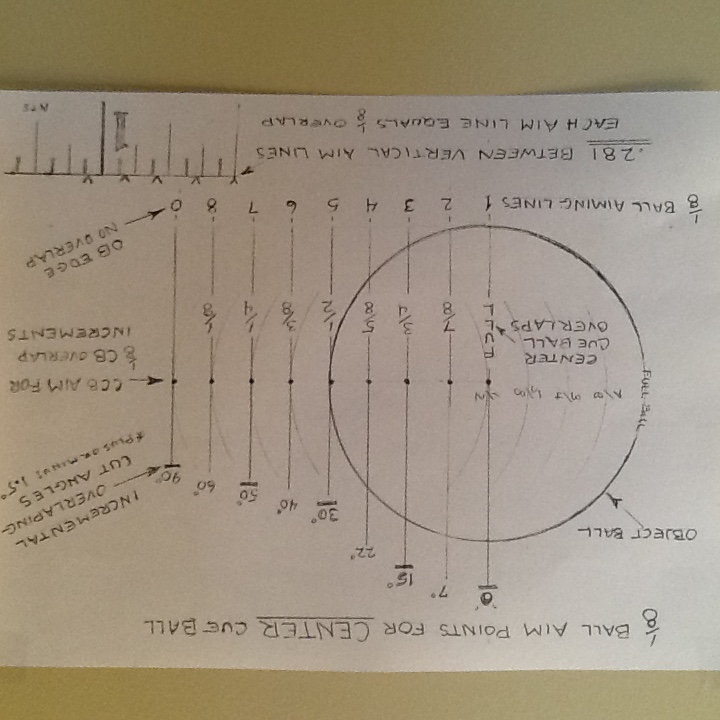 1/8 BALL AIM POINTS FOR CENTER CUE BALL
0° 7° 15° 22° 30° 40° 50° 60° 90°
OBJECT BALL
INCREMENTAL
OVERLAPING
CUT ANGLES
*PLUS OR MINUS 1.5°
FULL BALL
CCB AIM FOR
1/8 CB OVERLAP
INCREMENTS
CENTER
CUE BALL
OVERLAPS
FULL 7/8 3/4 5/8 1/2 3/8 1/4 1/8
OB EDGE
NO OVERLAP
1/8 BALL AIMING LINES 1 2 3 4 5 6 7 8 0
.281 BETWEEN VERTICAL AIM LINES
EACH AIM LINE EQUALS 1/8 OVERLAP